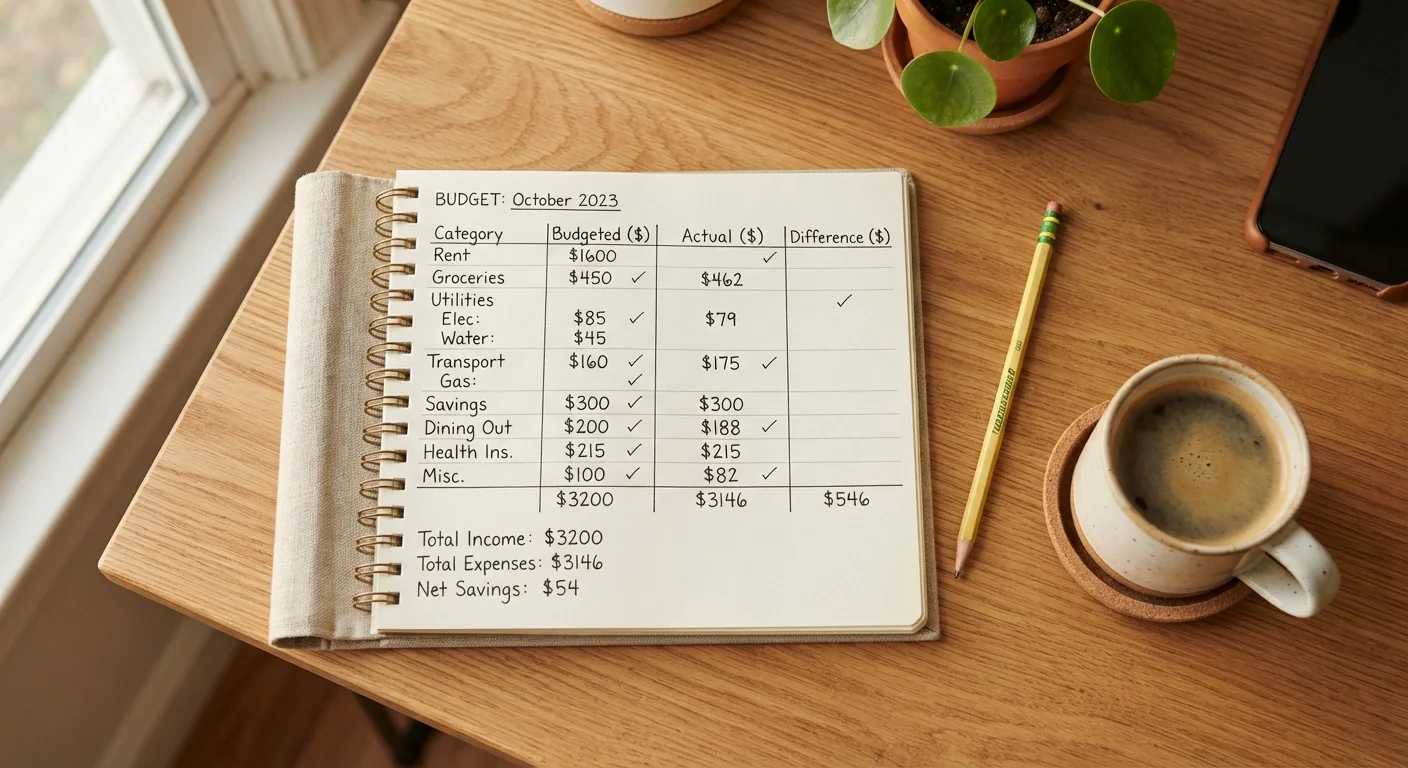 BUDGET: October 2023
Category Budgeted ($) Actual ($) Difference ($)
Rent $1600 ✓
Groceries $450 ✓ $462
Utilities ✓
Elec: $85 ✓ $79
Water: $45
Transport $160 ✓ $175 ✓
Gas: ✓
Savings $300 ✓ $300
Dining Out $200 ✓ $188 ✓
Health Ins. $215 ✓ $215
Misc. $100 ✓ $82 ✓
$3200 $3146 $546
Total Income: $3200
Total Expenses: $3146
Net Savings: $54